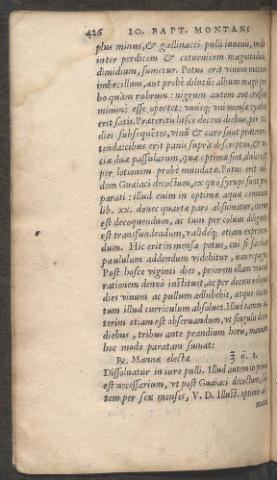 426 IO. BAPT. MONTANI
plus minus, & gallinacei pulli iuuenis, vel
inter perdicem & coturnicem magnitudine
dimidium, sumetur. Potus erit vinum
imbecillum, aut probè dilutũ: album magis pro
bo quàm rubrum: nigrum autem aut crassum
minimè esse oportet: vnicuiq; mensæ
erit satis. Præteritis hisce decem diebus, per
dies subsequẽtes, vinũ & caro sunt
tenda: cibus erit panis suprà descriptus, &
ciæ duæ passularum, quæ optimæ sint,
per lotionem probè mundatæ. Potus erit
dem Guaiaci decoctum, ex quo syrupi sunt
parati: illud enim in optimæ aquæ communis
lib. xx. donec quartæ pars absumatur,
est decoquendum, ac tum per colum diligenter
est transfundendum, validéq; etiam
dum. Hic erit in mensa potus, cui si sacchari
paululum addendum videbitur, non repugno.
Post hosce viginti dies, priorem illam
rationem denuo instituet, ac per decem reliquos
dies vinum ac pullum adhibebit, atque
tum illud curriculum absoluet. Illud tamen in-
terim etiam est obseruandum, vt singulis
diebus, tribus ante prandium horis,
hoc modo paratam sumat:
℞. Mannæ electæ ʒ ij. s.
Dissoluatur in iure pulli. Illud autem in primis
est necessarium, vt post Guaiaci decoctum,
tem per sex menses, V. D. Illust. optimè